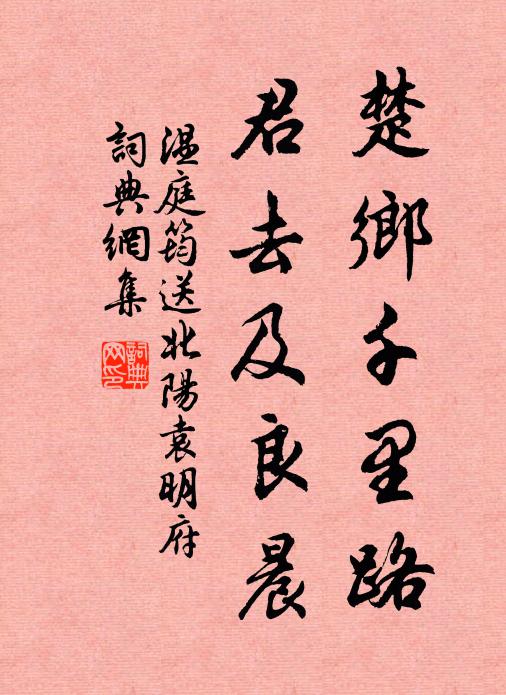 楚鄉千里路
君去及良晨
溫庭筠送北陽袁明府
詞典網集
詞典网印